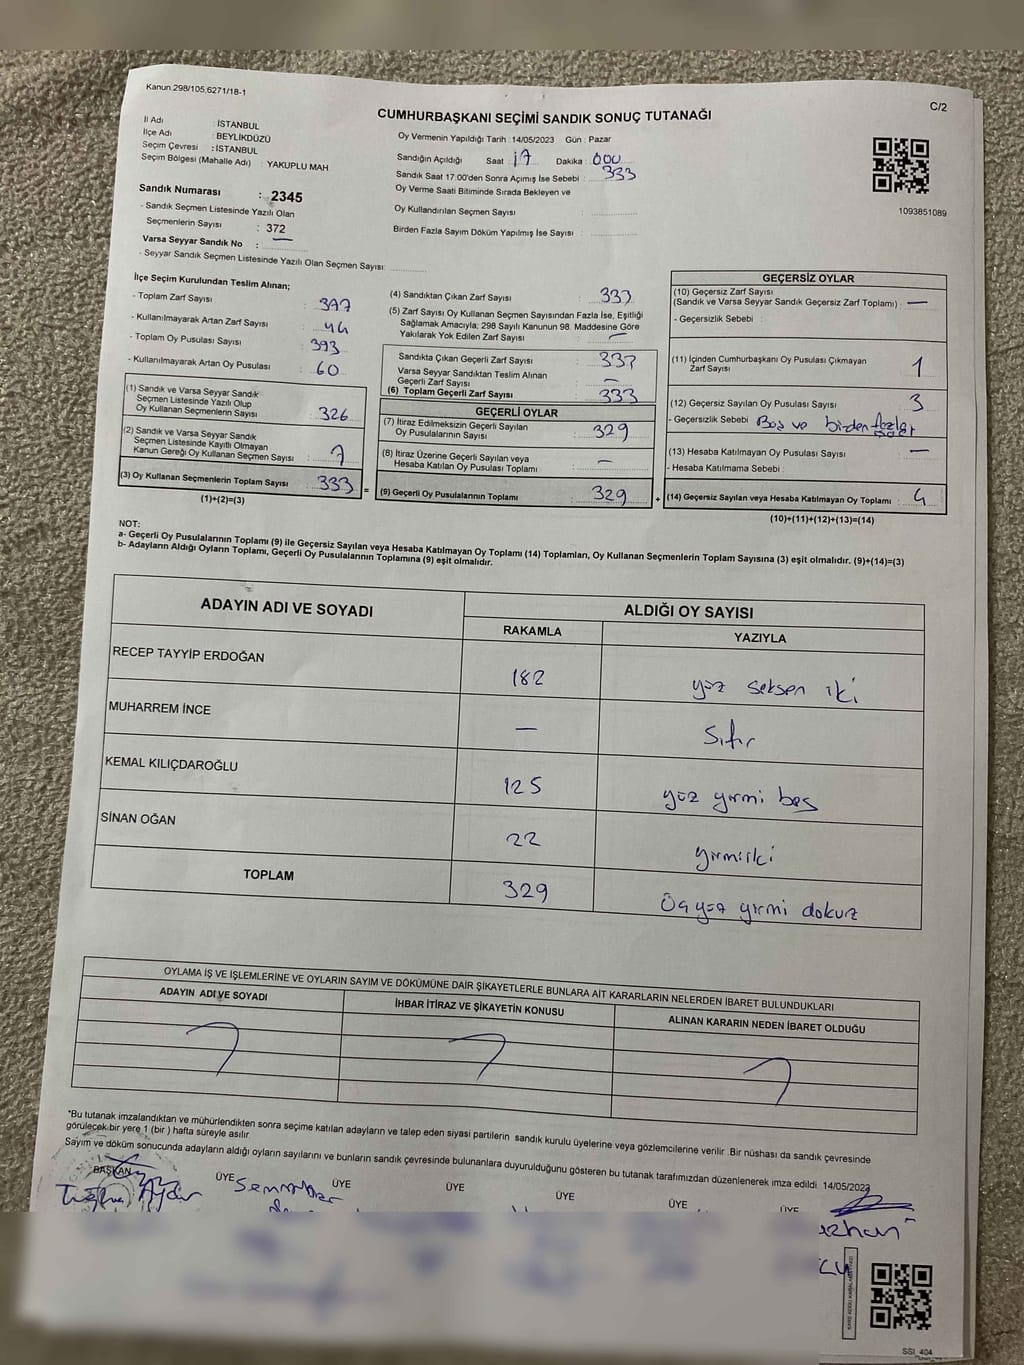 Kanun 298/105,6271/18-1
C/2
CUMHURBAŞKANI SEÇİMİ SANDIK SONUÇ TUTANAĞI
İl Adı : İSTANBUL
İlçe Adı : BEYLİKDÜZÜ
Seçim Çevresi : İSTANBUL
Seçim Bölgesi (Mahalle Adı) : YAKUPLU MAH
Sandık Numarası : 2345
- Sandık Seçmen Listesinde Yazılı Olan
Seçmenlerin Sayısı : 372
Varsa Seyyar Sandık No : —
- Seyyar Sandık Seçmen Listesinde Yazılı Olan Seçmen Sayısı:
Oy Vermenin Yapıldığı Tarih : 14/05/2023 Gün : Pazar
Sandığın Açıldığı Saat : 17 Dakika : 000
Sandık Saat 17:00'den Sonra Açımış İse Sebebi : 333
Oy Verme Saati Bitiminde Sırada Bekleyen ve
Oy Kullandırılan Seçmen Sayısı :
Birden Fazla Sayım Döküm Yapılmış İse Sayısı :
1093851089
İlçe Seçim Kurulundan Teslim Alınan;
- Toplam Zarf Sayısı : 397
- Kullanılmayarak Artan Zarf Sayısı : 44
- Toplam Oy Pusulası Sayısı : 393
- Kullanılmayarak Artan Oy Pusulası : 60
(1) Sandık ve Varsa Seyyar Sandık
Seçmen Listesinde Yazılı Olup
Oy Kullanan Seçmenlerin Sayısı : 326
(2) Sandık ve Varsa Seyyar Sandık
Seçmen Listesinde Kayıtlı Olmayan
Kanun Gereği Oy Kullanan Seçmen Sayısı : 7
(3) Oy Kullanan Seçmenlerin Toplam Sayısı : 333
(1)+(2)=(3)
(4) Sandıktan Çıkan Zarf Sayısı : 333
(5) Zarf Sayısı Oy Kullanan Seçmen Sayısından Fazla İse, Eşitliği
Sağlamak Amacıyla; 298 Sayılı Kanunun 98. Maddesine Göre
Yakılarak Yok Edilen Zarf Sayısı : —
Sandıkta Çıkan Geçerli Zarf Sayısı : 333
Varsa Seyyar Sandıktan Teslim Alınan
Geçerli Zarf Sayısı : —
(6) Toplam Geçerli Zarf Sayısı : 333
GEÇERLİ OYLAR
(7) İtiraz Edilmeksizin Geçerli Sayılan
Oy Pusulalarının Sayısı : 329
(8) İtiraz Üzerine Geçerli Sayılan veya
Hesaba Katılan Oy Pusulası Toplamı : —
(9) Geçerli Oy Pusulalarının Toplamı : 329
GEÇERSİZ OYLAR
(10) Geçersiz Zarf Sayısı
(Sandık ve Varsa Seyyar Sandık Geçersiz Zarf Toplamı) : —
- Geçersizlik Sebebi :
(11) İçinden Cumhurbaşkanı Oy Pusulası Çıkmayan
Zarf Sayısı : 1
(12) Geçersiz Sayılan Oy Pusulası Sayısı : 3
- Geçersizlik Sebebi : Boş ve birden fazla
(13) Hesaba Katılmayan Oy Pusulası Sayısı : —
- Hesaba Katılmama Sebebi :
(14) Geçersiz Sayılan veya Hesaba Katılmayan Oy Toplamı : 4
(10)+(11)+(12)+(13)=(14)
NOT:
a- Geçerli Oy Pusulalarının Toplamı (9) ile Geçersiz Sayılan veya Hesaba Katılmayan Oy Toplamı (14) Toplamları, Oy Kullanan Seçmenlerin Toplam Sayısına (3) eşit olmalıdır. (9)+(14)=(3)
b- Adayların Aldığı Oyların Toplamı, Geçerli Oy Pusulalarının Toplamına (9) eşit olmalıdır.
ADAYIN ADI VE SOYADI ALDIĞI OY SAYISI
RAKAMLA YAZIYLA
RECEP TAYYİP ERDOĞAN 182 yüz seksen iki
MUHARREM İNCE — Sıfır
KEMAL KILIÇDAROĞLU 125 yüz yirmi beş
SİNAN OĞAN 22 yirmiiki
TOPLAM 329 Üçyüz yirmi dokuz
OYLAMA İŞ VE İŞLEMLERİNE VE OYLARIN SAYIM VE DÖKÜMÜNE DAİR ŞİKAYETLERLE BUNLARA AİT KARARLARIN NELERDEN İBARET BULUNDUKLARI
ADAYIN ADI VE SOYADI İHBAR İTİRAZ VE ŞİKAYETİN KONUSU ALINAN KARARIN NEDEN İBARET OLDUĞU
"Bu tutanak imzalandıktan ve mühürlendikten sonra seçime katılan adayların ve talep eden siyasi partilerin sandık kurulu üyelerine veya gözlemcilerine verilir .Bir nüshası da sandık çevresinde
görülecek bir yere 1 (bir ) hafta süreyle asılır.
Sayım ve döküm sonucunda adayların aldığı oyların sayılarını ve bunların sandık çevresinde bulunanlara duyurulduğunu gösteren bu tutanak tarafımızdan düzenlenerek imza edildi. 14/05/2023
BAŞKAN ÜYE ÜYE ÜYE ÜYE ÜYE
SSI_404